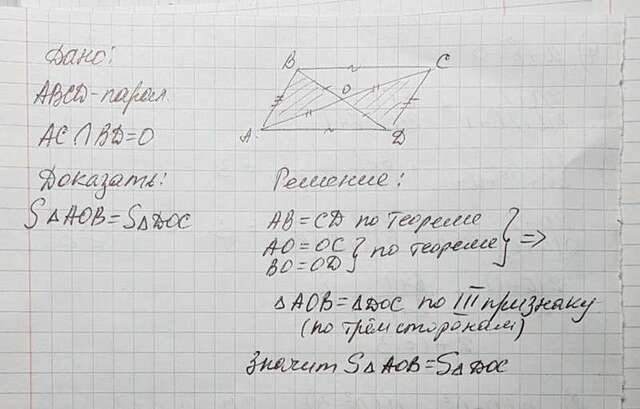 Дано:
ABCD-парал.
AC ∩ BD = O
Доказать:
S△AOB = S△DOC
B
C
O
A
D
Решение:
AB = CD по теореме
AO = OC
BO = OD } по теореме } =>
△AOB = △DOC по III признаку
(по трём сторонам)
Значит S△AOB = S△DOC